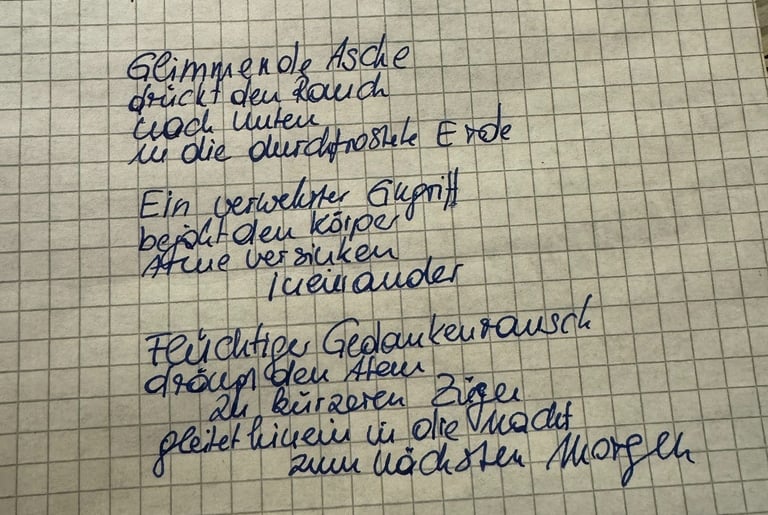 Glimmende Asche
drückt den Rauch
nach unten
in die durchfrostete Erde
Ein verwehrter Eingriff
bejaht den Körper
Arme versinken
ineinander
Flüchtiger Gedankenrausch
drängt den Atem
zu kürzeren Zügen
gleitet hinein in die Nacht
zum nächsten Morgen